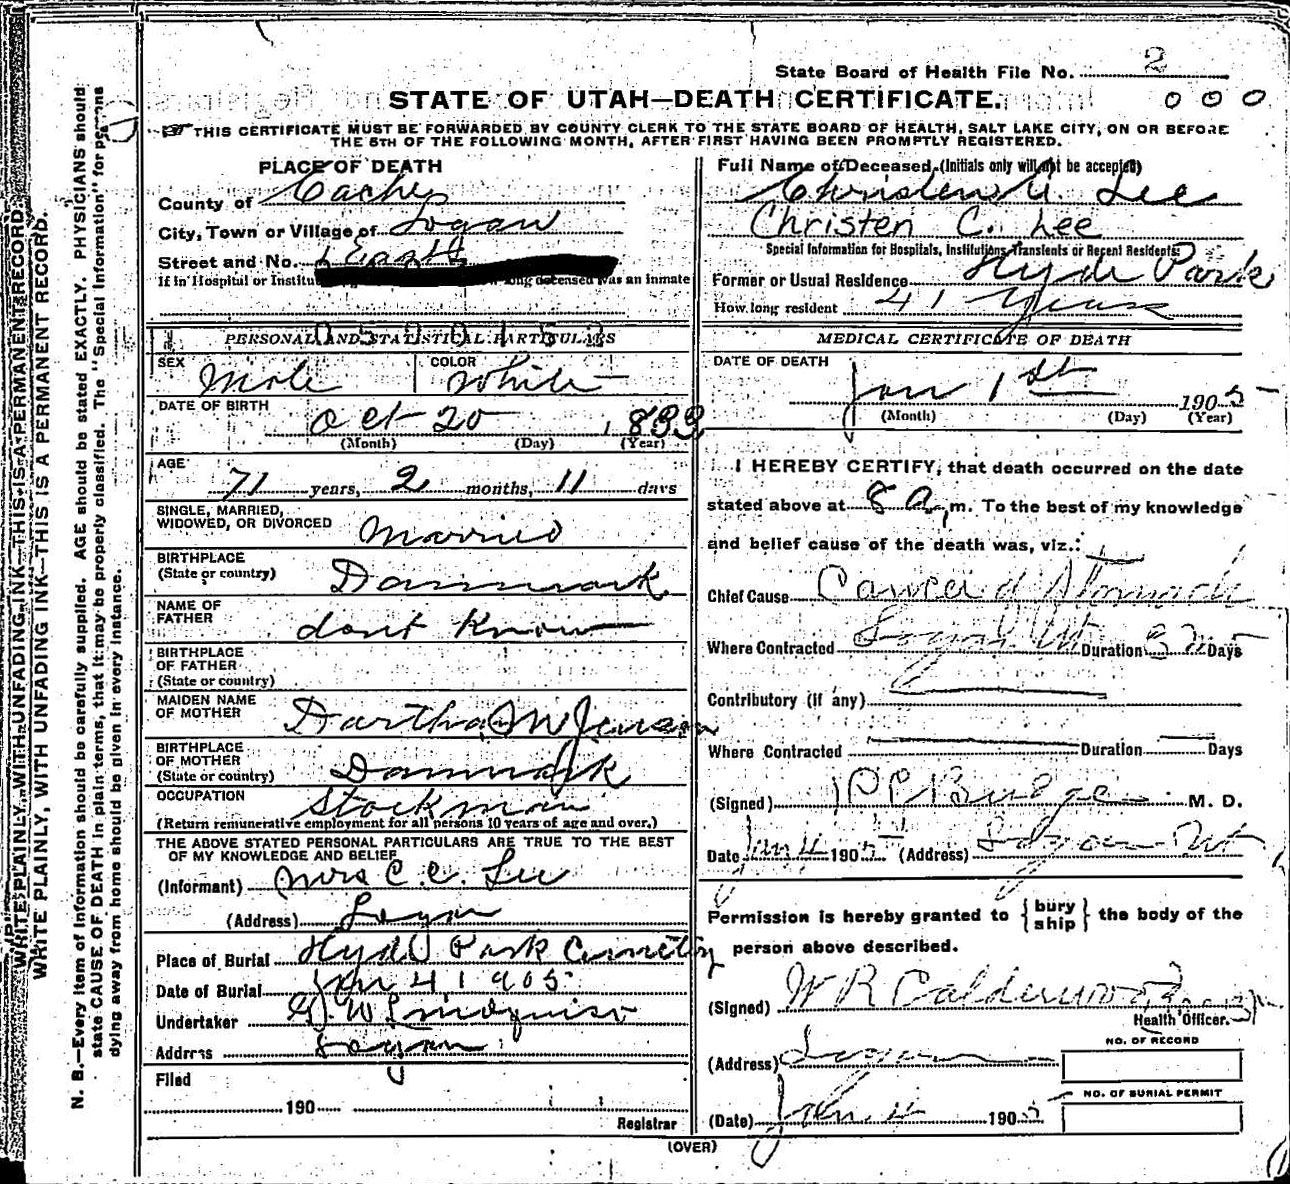 State Board of Health File No. 2
STATE OF UTAH—DEATH CERTIFICATE.
0 0 0
THIS CERTIFICATE MUST BE FORWARDED BY COUNTY CLERK TO THE STATE BOARD OF HEALTH, SALT LAKE CITY, ON OR BEFORE
THE 5TH OF THE FOLLOWING MONTH, AFTER FIRST HAVING BEEN PROMPTLY REGISTERED.
WRITE PLAINLY, WITH UNFADING INK—THIS IS A PERMANENT RECORD.
WRITE PLAINLY, WITH UNFADING INK—THIS IS A PERMANENT RECORD.
N. B.—Every item of information should be carefully supplied. AGE should be stated EXACTLY. PHYSICIANS should
state CAUSE OF DEATH in plain terms, that it may be properly classified. The "Special Information" for persons
dying away from home should be given in every instance.
PLACE OF DEATH
County of Cache
City, Town or Village of Logan
Street and No.
If in Hospital or long deceased was an inmate
0500153
PERSONAL AND STATISTICAL PARTICULARS
SEX Male COLOR White
DATE OF BIRTH
Oct 20 1833
(Month) (Day) (Year)
AGE
71 years, 2 months, 11 days
SINGLE, MARRIED,
WIDOWED, OR DIVORCED Married
BIRTHPLACE
(State or country) Danmark
NAME OF
FATHER dont Know
BIRTHPLACE
OF FATHER
(State or country)
MAIDEN NAME
OF MOTHER Dartha M Jensen
BIRTHPLACE
OF MOTHER
(State or country) Danmark
OCCUPATION Stockman
(Return remunerative employment for all persons 10 years of age and over.)
THE ABOVE STATED PERSONAL PARTICULARS ARE TRUE TO THE BEST
OF MY KNOWLEDGE AND BELIEF
(Informant) Mrs C. C. Lee
(Address) Logan
Place of Burial Hyde Park Cemetery
Date of Burial Jan 4 1905
Undertaker G. W. Lindquist
Address Logan
Filed
190
Registrar
Full Name of Deceased (Initials only will not be accepted)
Christen C. Lee
Christen C. Lee
Special Information for Hospitals, Institutions, Transients or Recent Residents
Former or Usual Residence Hyde Park
How long resident 41 Years
MEDICAL CERTIFICATE OF DEATH
DATE OF DEATH
Jan 1st 1905
(Month) (Day) (Year)
I HEREBY CERTIFY, that death occurred on the date
stated above at 8 a. m. To the best of my knowledge
and belief cause of the death was, viz.:
Chief Cause Cancer of Stomach
Where Contracted Logan Ut Duration 3 Days
Contributory (if any)
Where Contracted Duration Days
(Signed) Budge M. D.
Date Jan 4 1905 (Address) Logan Ut
Permission is hereby granted to { bury ship } the body of the
person above described.
(Signed) W R Calderwood
Health Officer.
(Address) Logan
NO. OF RECORD
NO. OF BURIAL PERMIT
(Date) Jan. 4 1905
(OVER)